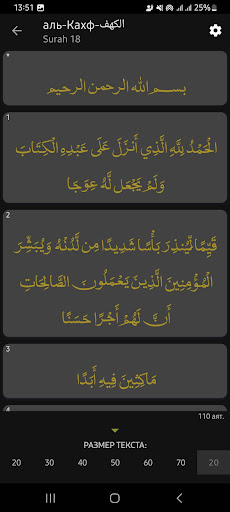 13:51
25%
аль-Кахф-الكهف
Surah 18
*
بسم الله الرحمن الرحيم
1
الْحَمْدُ لِلَّهِ الَّذِي أَنزَلَ عَلَى عَبْدِهِ الْكِتَابَ
وَلَمْ يَجْعَل لَّهُ عِوَجَا
2
قَيِّمًا لِّيُنذِرَ بَأْسًا شَدِيدًا مِن لَّدُنْهُ وَيُبَشِّرَ
الْمُؤْمِنِينَ الَّذِينَ يَعْمَلُونَ الصَّالِحَاتِ
أَنَّ لَهُمْ أَجْرًا حَسَنًا
3
مَاكِثِينَ فِيهِ أَبَدًا
4
110 аят.
РАЗМЕР ТЕКСТА:
20 30 40 50 60 70 20